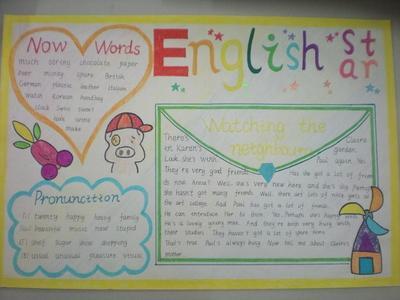 Now Words
much boring chocolate paper
over money spare British
German plastic leather Italian
watch Korean handbag
clock Swiss sweet
make
English Star
Watching the
neighbours
There's Claire
in Karen's garden.
Look she's with Paul again. Yes,
They're very good friends. Has she got a lot of friends
Anna? Well. she's very new here and she's shy. Perhaps
she hasn't got many friends. Well. there are lots of nice girls at
the art college. And Paul has got a lot of friends.
He can introduce her to them. Yes. Perhaps she's happy with
He's a lovely young man. And they're both very busy with
their studies. They haven't got a lot of spare time.
That's true. Paul's always busy. Now tell me about Claire's
mother
Pronunciation
(1) twenty happy heavy family
(2) beautiful music new stupid
(3) shelf sugar shoe shopping
(4) usual unusual pleasure visual